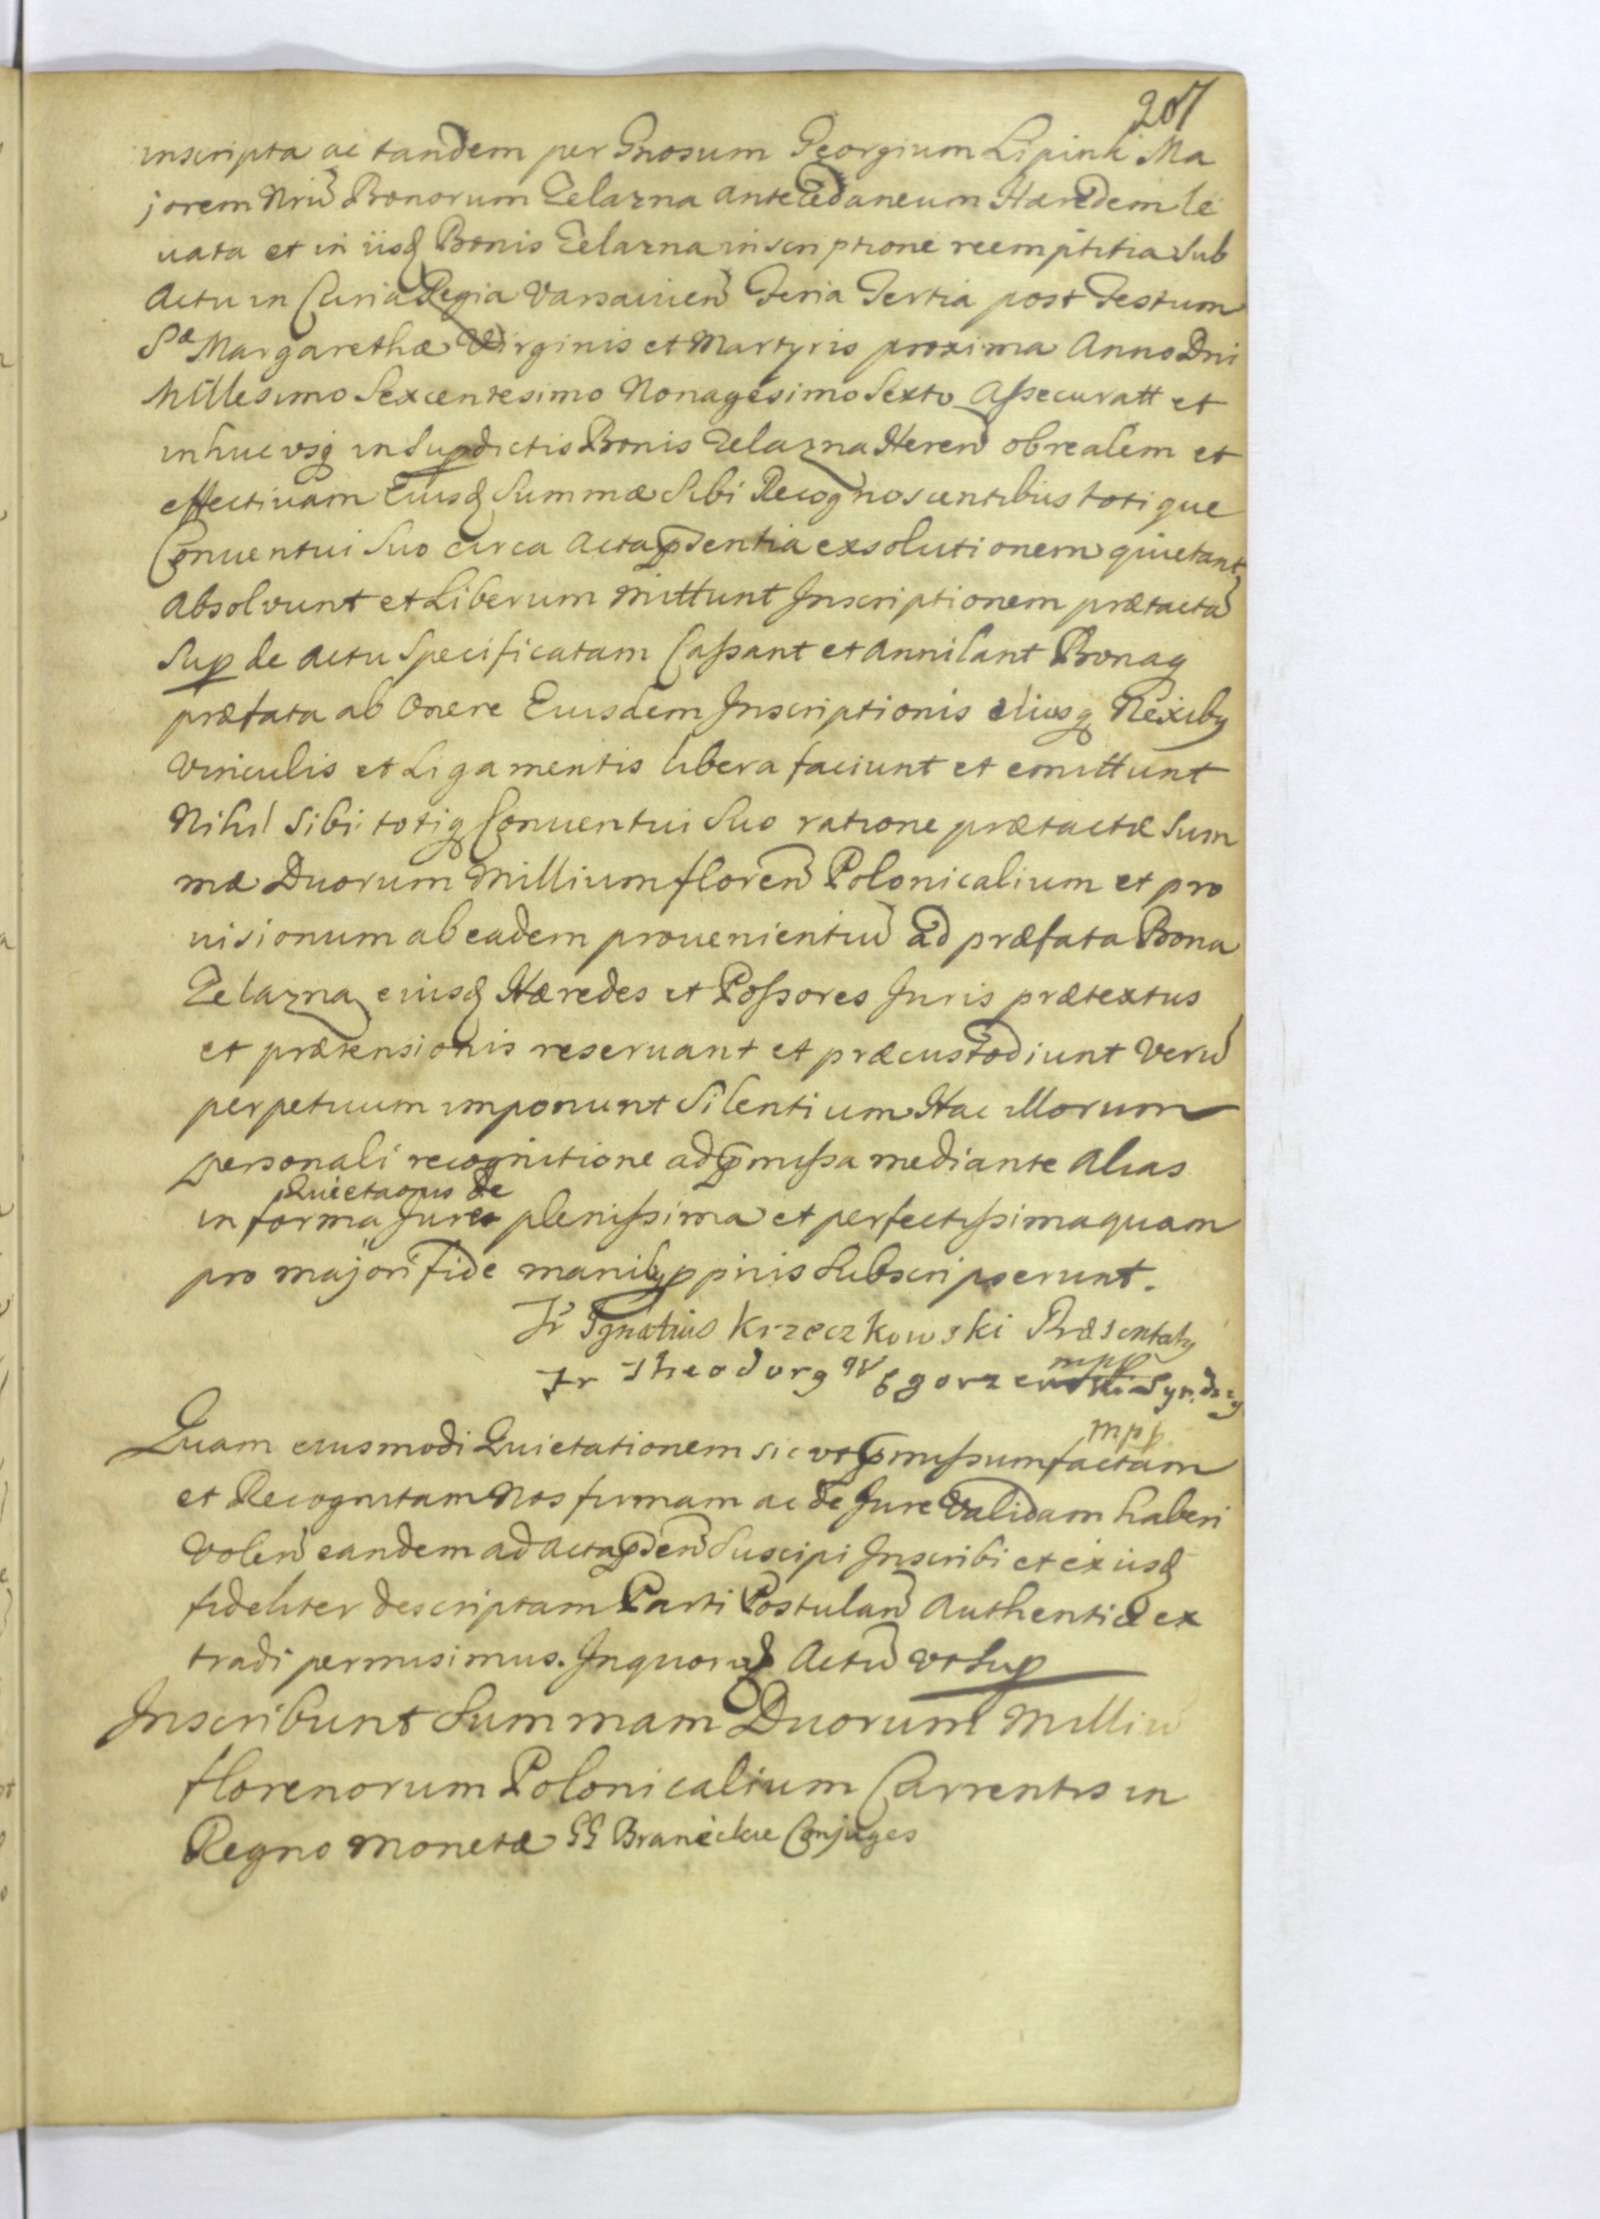 207
inscripta ac tandem per Gnosum Georgium Lipinski Ma
jorem Nrū Bonorum Zelazna antecedaneum Hæredem le
vata et in iisq Bonis Zelazna inscriptione reemptitia sub
Actu in Curia Regia Varsavien Feria Tertia post Festum
Sæ Margarethæ Virginis et Martyris proxima Anno Dni
Millesimo Sexcentesimo Nonagesimo Sexto Assecuratt et
inhuc vsq in Supdictis Bonis Zelazna Heren ob realem et
effectivam Eiusq Summæ Sibi Recognoscentibus totique
Conuentui Suo circa Acta pdentia exsolutionem quietant
Absolvunt et Liberum mittunt Inscriptionem prætactā
Sup de actu Specificatam Cassant et Annilant Bonaq
præfata ab Onere Eiusdem Inscriptionis eiusq Nexibq
Vinculis et Ligamentis libera faciunt et emittunt
Nihil Sibi totiq Conuentui Suo ratione prætactæ Sum
mæ Duorum Millium floren Polonicalium et pro
uisionum ab eadem prouenientiū ad præfata Bona
Zelazna eiusq Hæredes et Possores Juris prætextus
et prætensionis reseruant et præcustodiunt Verū
perpetuum imponunt Silentium Hac illorum
personali recognitione ad pmissa mediante Alias
Quietaonis de
in forma Jure plenissima et perfectissima quam
pro majori fide manibq ppriis Subscripserunt.
Fr Ignatius Krzeczkowski Præsentatq
mpp
Fr Theodorq Syndicq
mpp
Quam eiusmodi Quietationem sic vt pmissum factam
et Recognitam Nos firmam ac de Jure Validam haberi
Volen eandem ad acta pden Suscipi Inscribi et ex iisq
fideliter descriptam Parti Postulan Authenticæ ex
tradi permisimus. In quorū Actū vt Sup
Inscribunt Summam Duorum Milliū
florenorum Polonicalium Currentis in
Regno Monetæ GG Branickie Conjuges